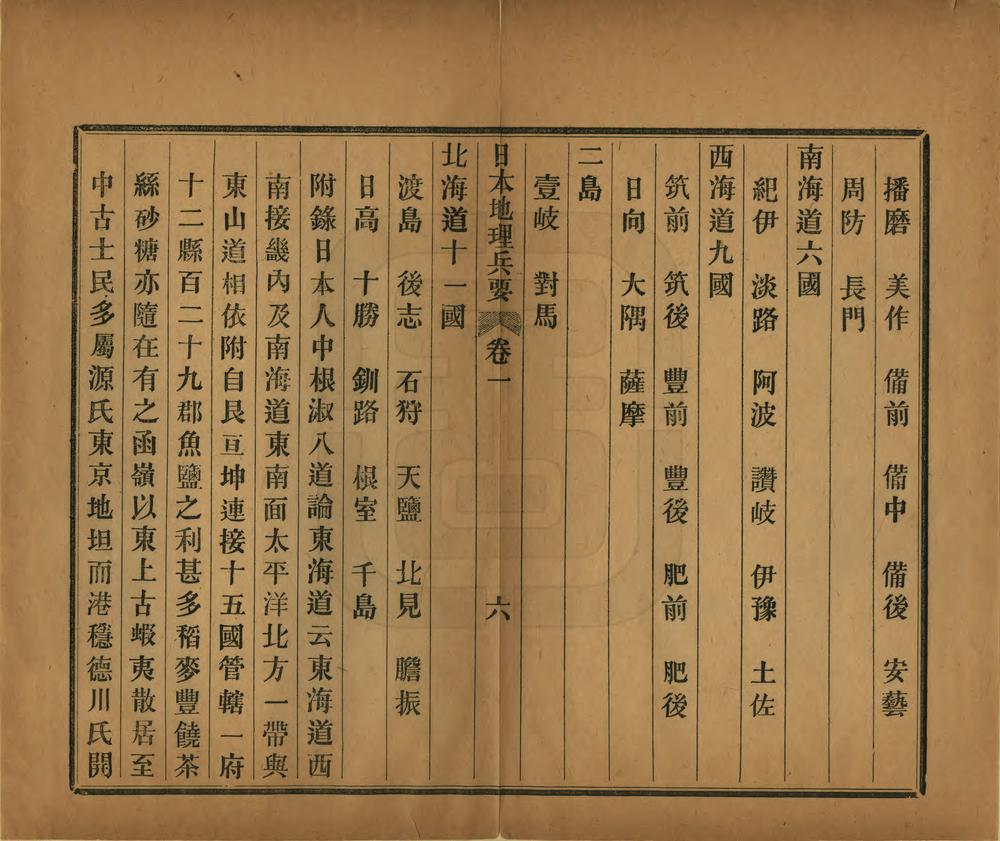 播磨　美作　備前　備中　備後　安藝
周防　長門
南海道六國
紀伊　淡路　阿波　讚岐　伊豫　土佐
西海道九國
筑前　筑後　豐前　豐後　肥前　肥後
日向　大隅　薩摩
二島
壹岐　對馬
日本地理兵要　卷一　六
北海道十一國
渡島　後志　石狩　天鹽　北見　膽振
日高　十勝　釧路　根室　千島
附錄日本人中根淑八道論東海道云東海道西
南接畿內及南海道東南面太平洋北方一帶與
東山道相依附自艮亙坤連接十五國管轄一府
十二縣百二十九郡魚鹽之利甚多稻麥豐饒茶
絲砂糖亦隨在有之函嶺以東上古蝦夷散居至
中古士民多屬源氏東京地坦而港穩德川氏開